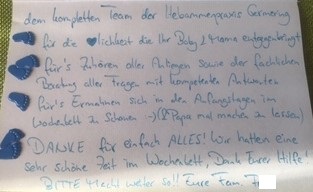 dem kompletten Team der Hebammenpraxis Germering
für die ♥lichkeit die Ihr Baby & Mama entgegenbringt
für's Zuhören aller Antigen sowie der fachlichen
Beratung aller Fragen mit kompetenten Antworten
für's Ermahnen sich in den Anfangstagen im
Wochenbett zu Schonen :-) (& Papa mal machen zu lassen)
DANKE für einfach ALLES! Wir hatten eine
sehr schöne Zeit im Wochenbett, Dank Eurer Hilfe
BITTE Macht weiter so!! Eure Fam.